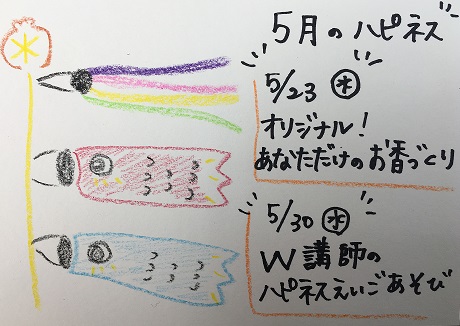 5月のハピネス
5/23 ㊍
オリジナル!
あなただけのお香づくり
5/30 ㊍
W講師の
ハピネスえいごあそび